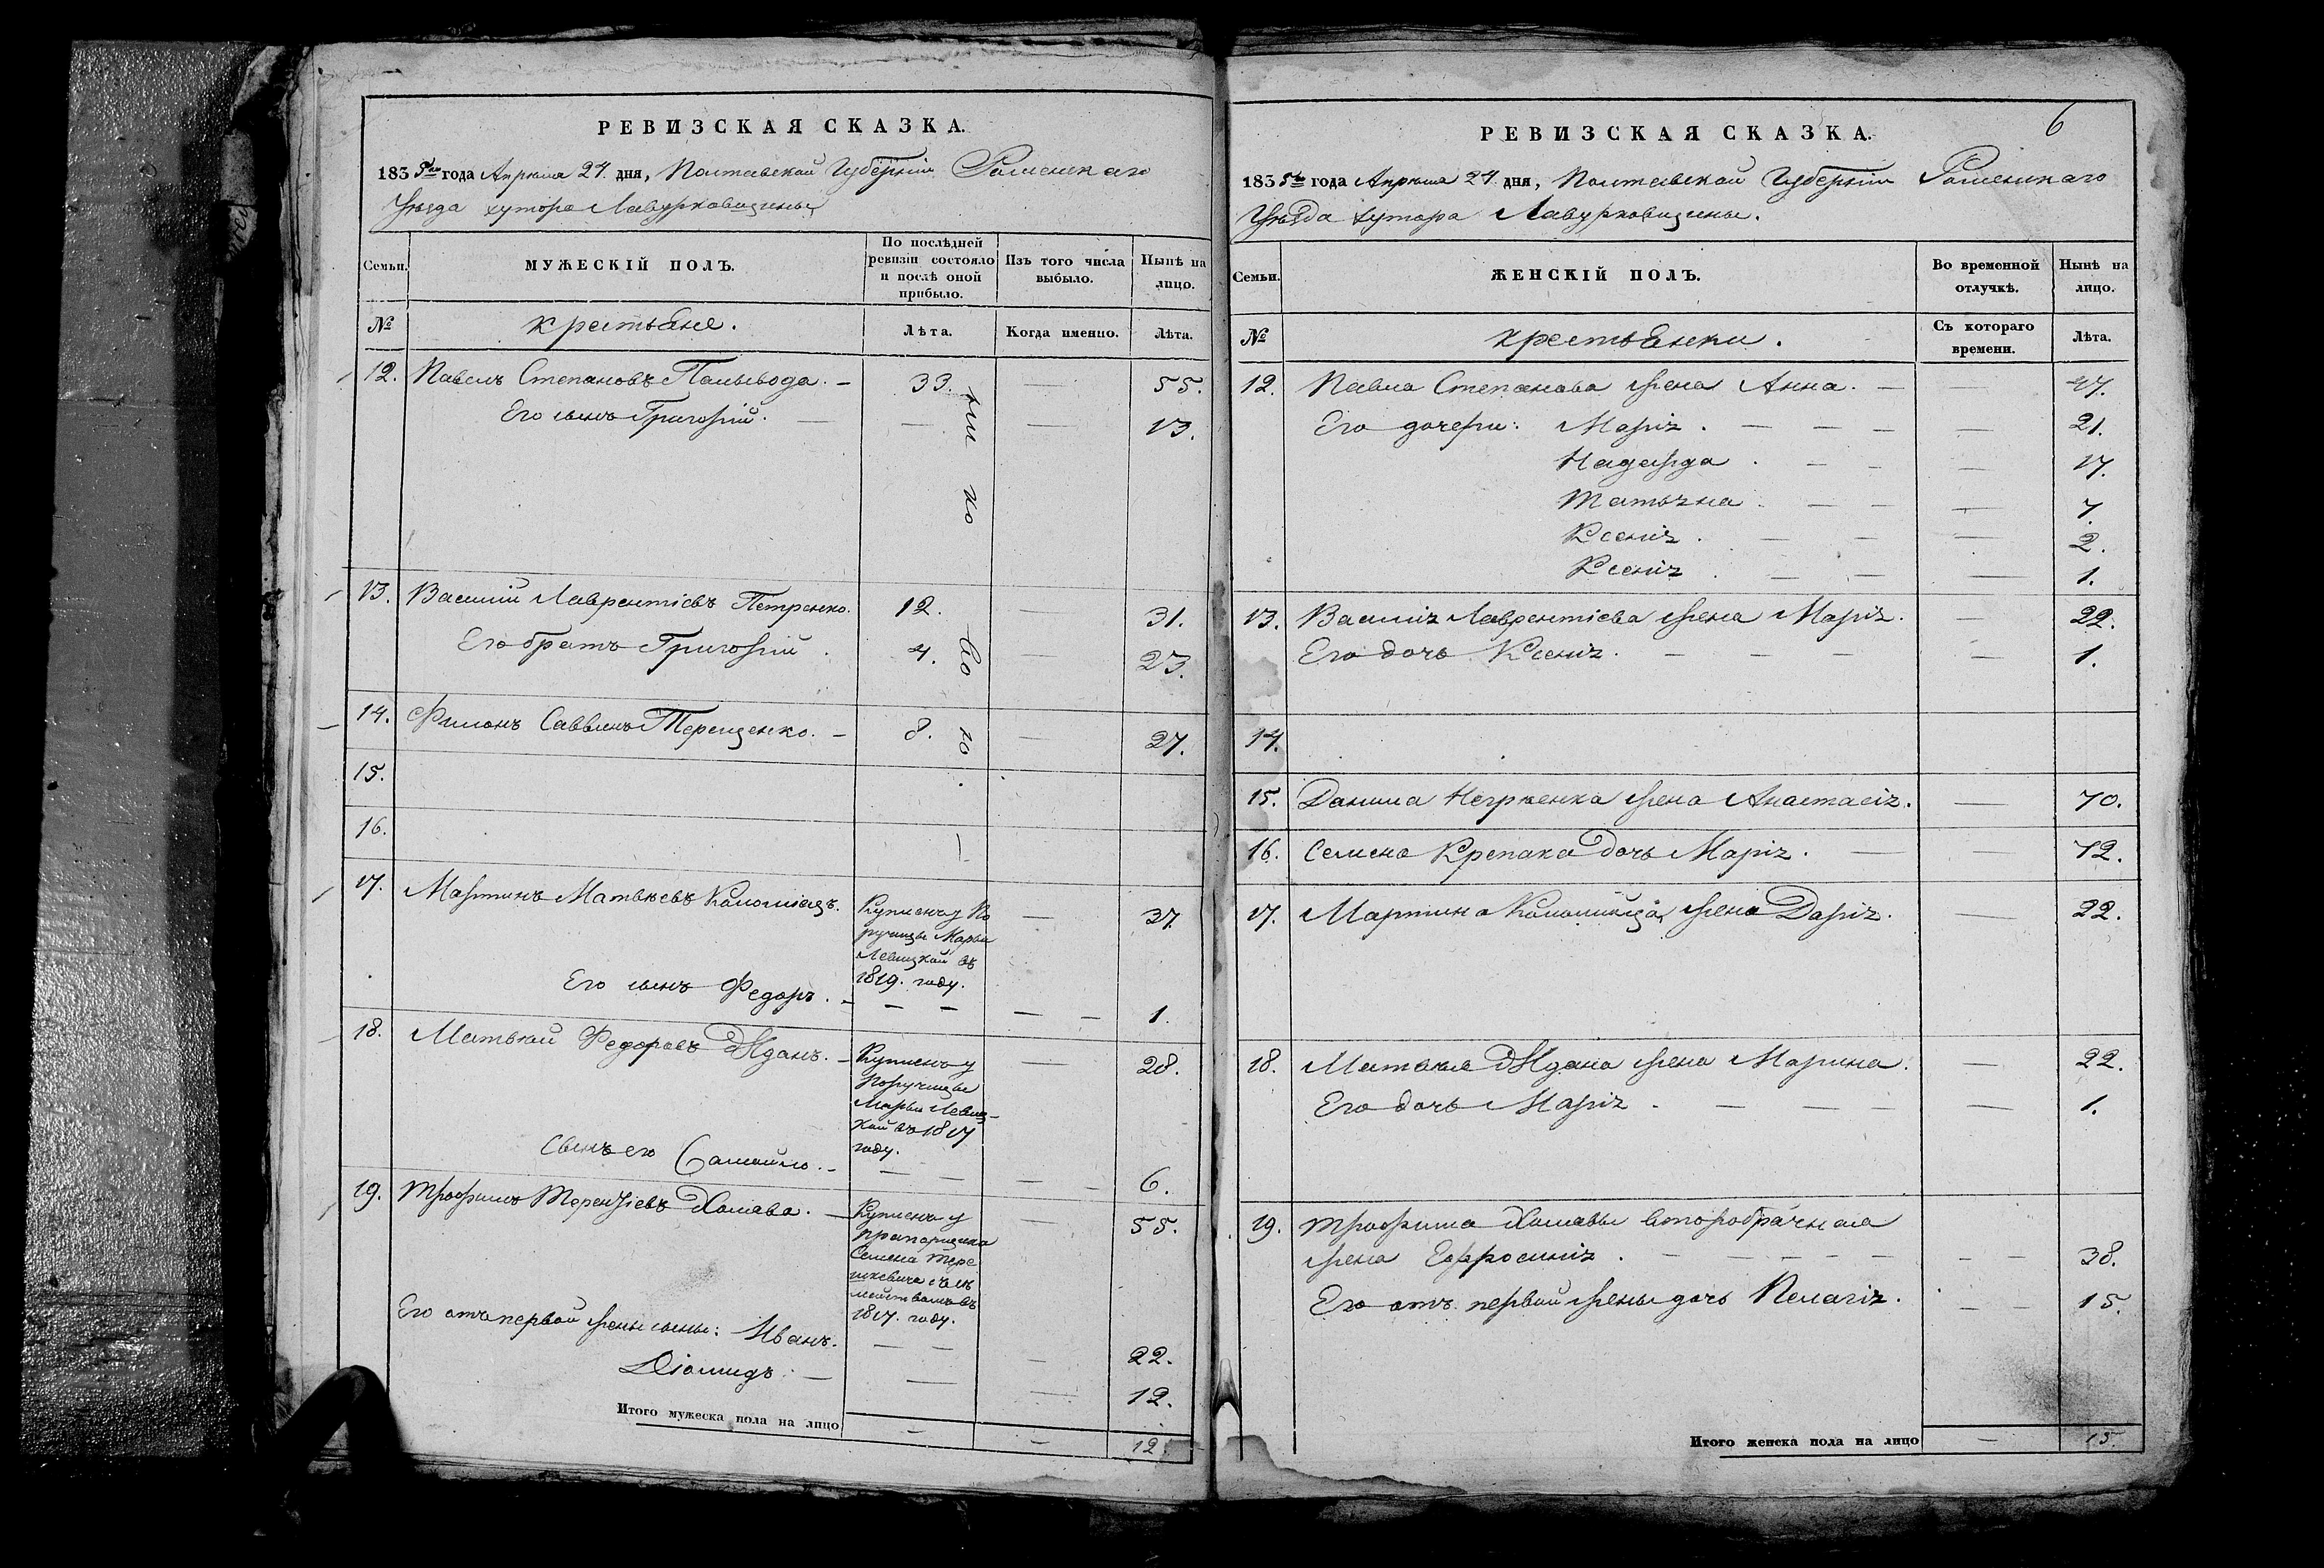 РЕВИЗСКАЯ СКАЗКА.
1835го года Апреля 27. дня, Полтавской Губерніи Роменскаго
Уѣзда хутора Лавурковщины
Семьи.
МУЖЕСКІЙ ПОЛЪ.
По послѣдней ревизіи состояло и послѣ оной прибыло.
Изъ того числа выбыло.
Нынѣ на лицо.
№
крестьяне.
Лѣта.
Когда именно.
Лѣта.
12. Павелъ Степановъ Палывода. — 33. — 55.
Его сынъ Григорій. — — — 13.
13. Василий Лаврентіевъ Петренко. 12. — 31.
Его братъ Григорій. 4. — 23.
14. Филонъ Саввинъ Терещенко. — 8. — 27.
15.
16.
17. Мартинъ Матвѣевъ Коломіецъ. — 37.
Купленъ у По
ручицы Марьи
Левицкой въ
1819. году.
Его сынъ Федоръ. — — — — — 1.
18. Матвѣй Федоровъ Жданъ. — — 28.
Купленъ у
Поручицы
Марьи Левиц-
кой въ 1817
году.
Сынъ его Самойло. — — — — 6.
19. Трофимъ Терентіевъ Халава. — — 55.
Купленъ у
Прапорщика
Семена Тере
шкевича съ се
мействомъ въ
1817. году.
Его отъ первой жены сыны: Иванъ. — — — 22.
Діомидъ. — — — 12.
Итого мужеска пола на лицо — — 12.
6
РЕВИЗСКАЯ СКАЗКА.
1835го года Апреля 27 дня, Полтавской Губерніи Роменскаго
Уѣзда хутора Лавурковщины.
Семьи.
ЖЕНСКІЙ ПОЛЪ.
Во временной отлучкѣ.
Нынѣ на лицо.
№
крестьянки.
Съ котораго времени.
Лѣта.
12. Павла Степанова жена Анна. — — 47.
Его дочери: Марія. — — — — 21.
Надежда. — — — 17.
Татьяна. — — — 7.
Ксенія. — — — 2.
Ксенія. — — — 1.
13. Василія Лаврентіева жена Марія. — 22.
Его дочь Ксенія. — — — — 1.
14.
15. Данила Негрѣенка жена Анастасія. — 70.
16. Семена Крепака дочь Марія. — — 72.
17. Мартина Коломійца жена Дарія. — 22.
18. Матвѣя Ждана жена Марина. — 22.
Его дочь Марія. — — — — — 1.
19. Трофима Халавы второбрачная
жена Ефросинія. — — — — — — 38.
Его отъ первой жены дочь Пелагія. — 15.
Итого женска пола на лицо — 15.